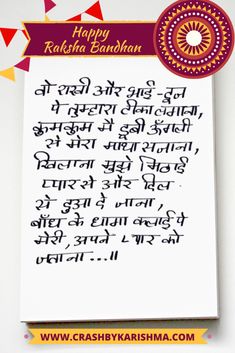 Happy
Raksha Bandhan
वो राखी और भाई-दूज
पे तुम्हारा टीका लगाना,
कुमकुम मे डूबी ऊँगली
से मेरा माथा सजाना,
खिलाना मुझे मिठाई
प्यार से और दिल
से दुआ दे जाना,
बाँध के धागा कलाई पे
मेरी, अपने प्यार को
जताना...!!
WWW.CRASHBYKARISHMA.COM